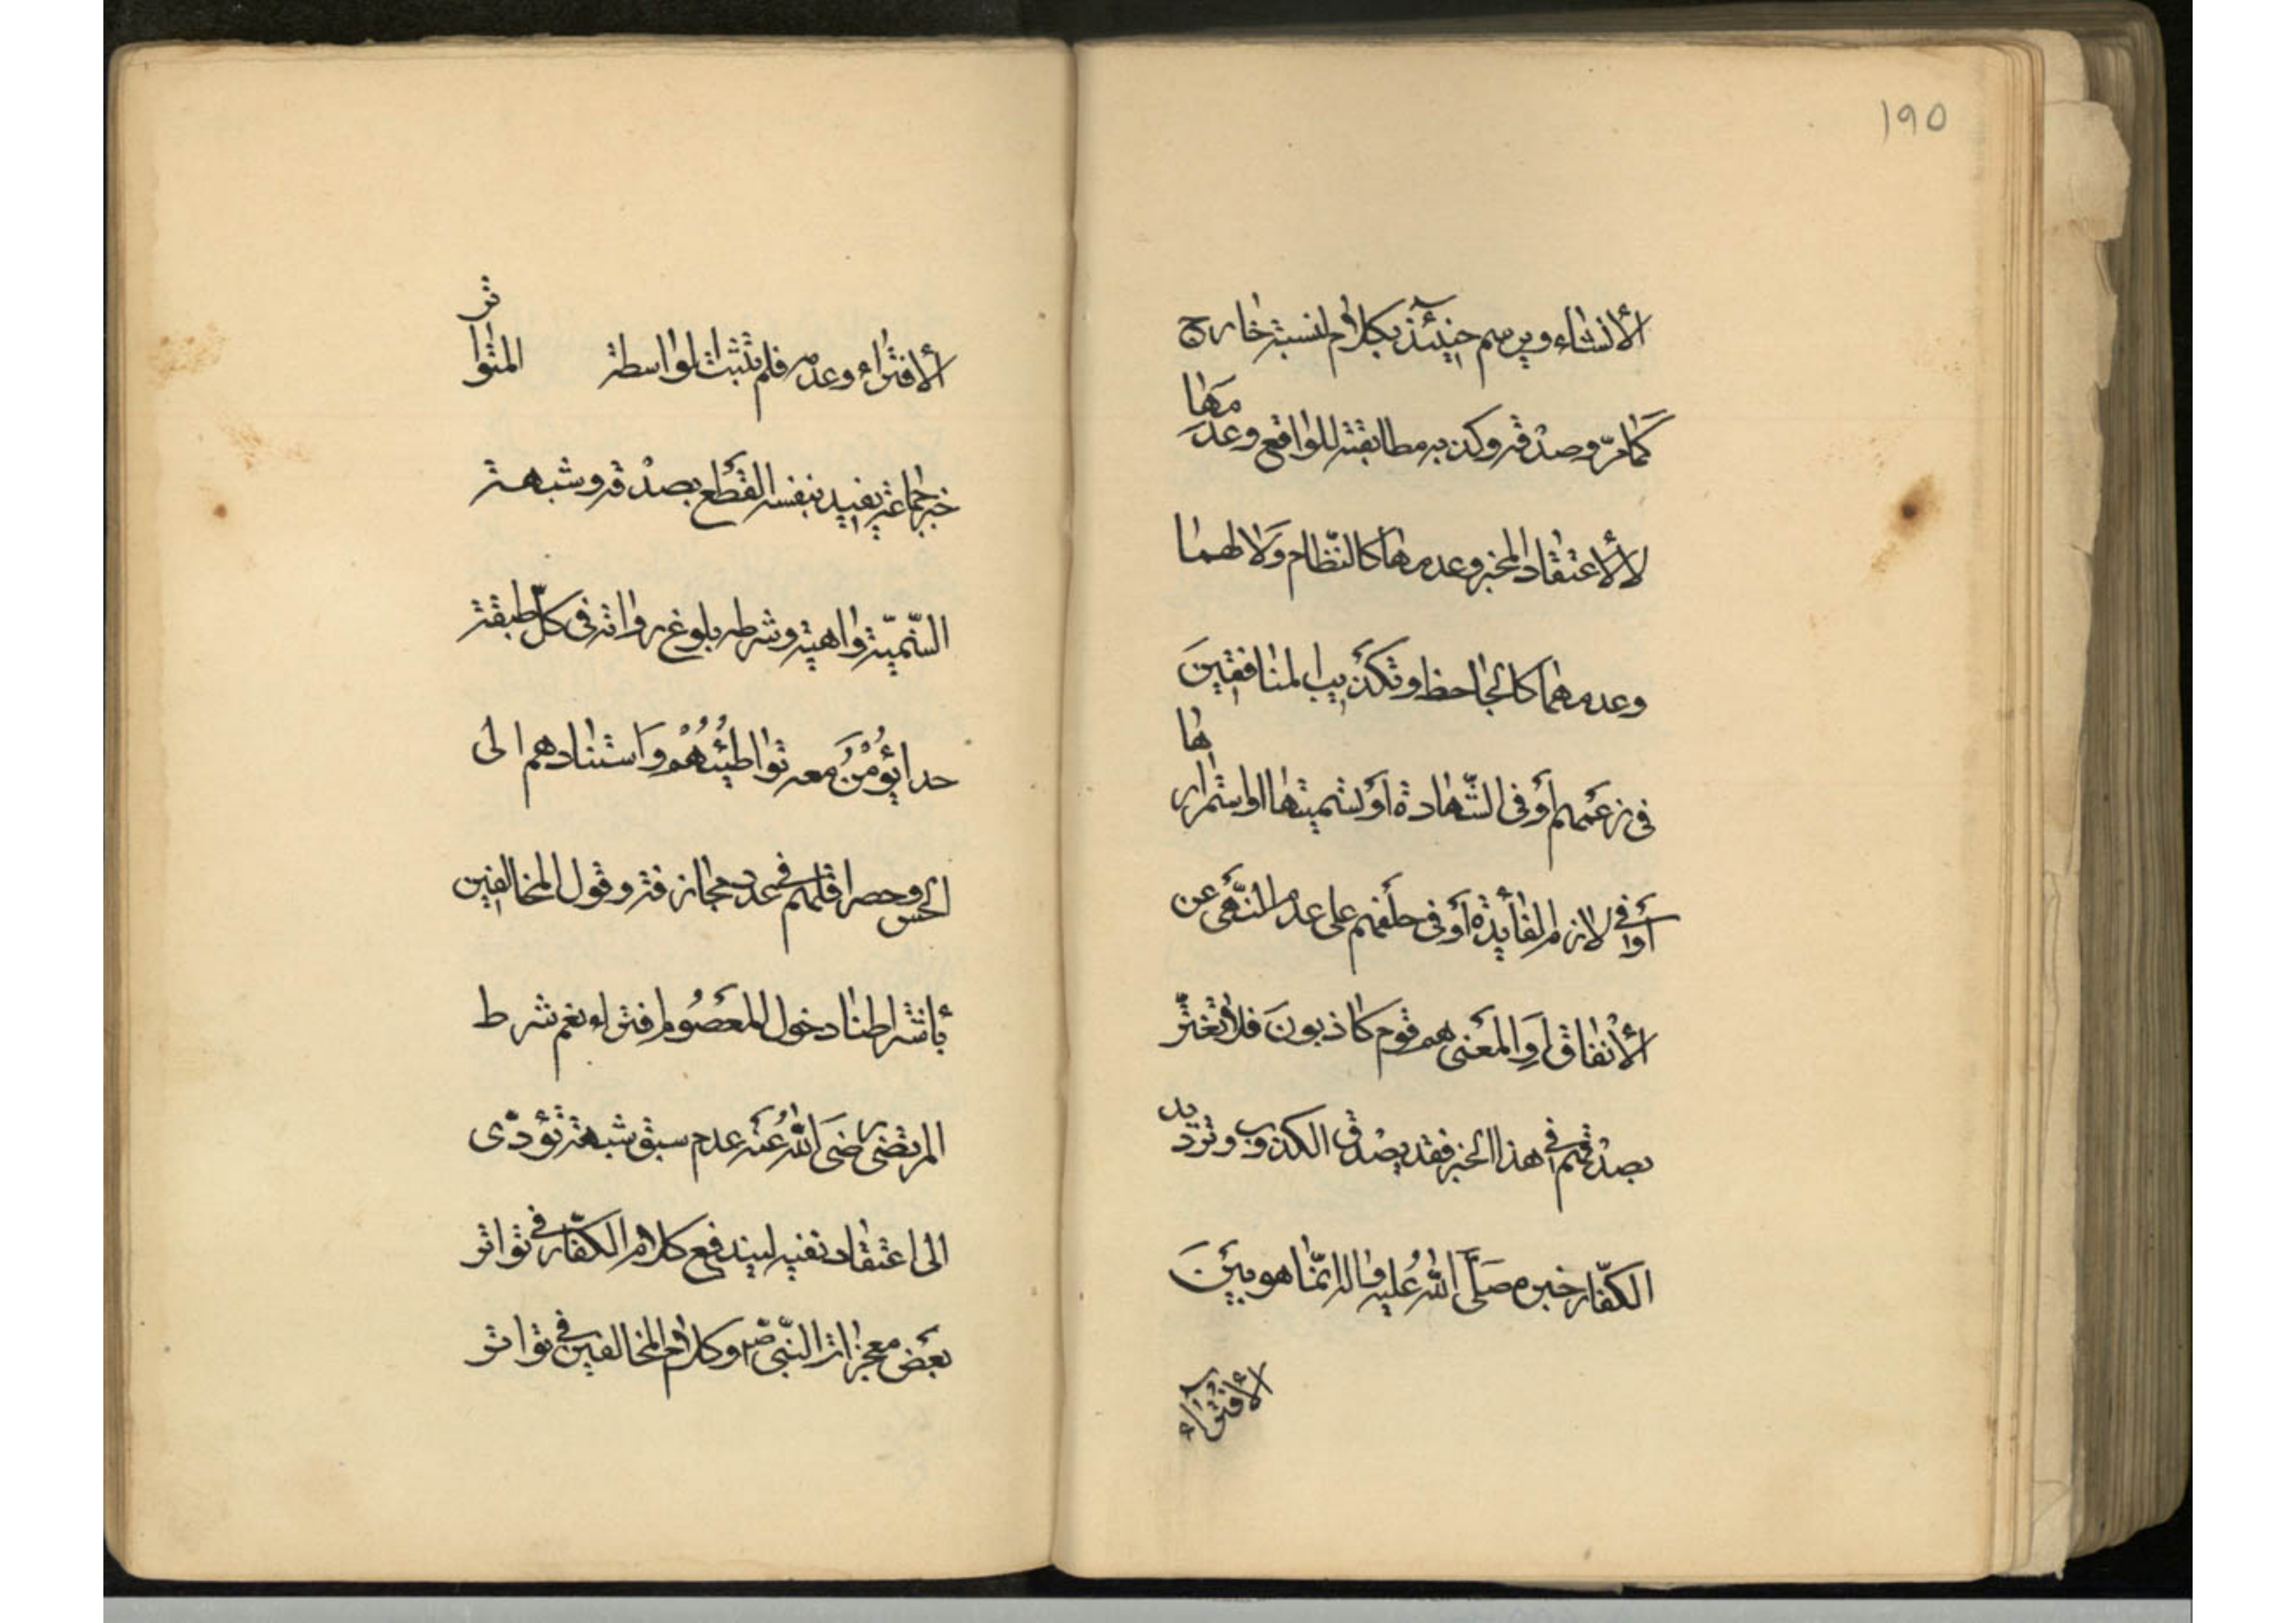 ١٩٥
الأنشاء ويرسم حينئذ بكلام لنسبته خارج
كمامرّ وصدقه وكذبه مطابقته للواقع وعدمها
لا لأعتقاد المخبر وعدمها كالنّظام ولا لهما
وعدمهما كالجاحظ وتكذيب المنافقين
في زعمهم أو في الشّهادة أو لتسميتها او استمرارها
أو في لازم الفأيدة أو في حلفهم على عدم النّهى عن
الأنفاق أو المعنى هم قوم كاذبون فلا تغترّ
بصدقهم في هذا الخبر فقد يصدق الكذوب وترديد
الكفّار خبره صلّى الله عليه واله انمّا هو بين
الأفتراء
الأفتراء وعدمه فلم تثبت الواسطة المتواتر
خبر جماعة يفيد بنفسه القطع بصدقه وشبهة
السّمنيّة واهية وشرطه بلوغ رواته في كلّ طبقة
حدا يؤمن معه تواطئهم واستنادهم الى
الحس وحصر اقلّهم في عدد مجازفة وقول المخالفين
بأشتراطنا دخول المعصوم افتراء نعم شرط
المرتضى رضى الله عنه عدم سبق شبهة تؤدّى
الى اعتقاد نفيه ليندفع كلام الكفّار في تواتر
بعض معجزات النبّى ص وكلام المخالفين في تواتر